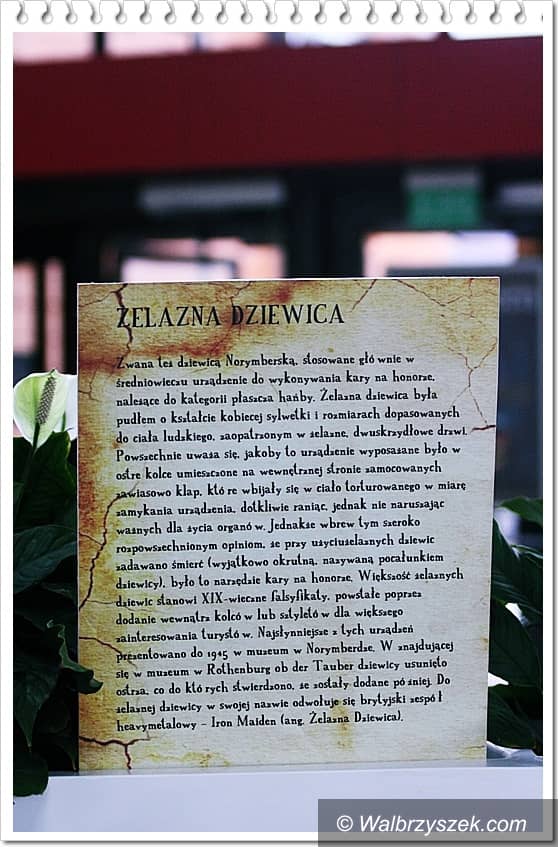 ŻELAZNA DZIEWICA
Zwana też dziewicą Norymberską, stosowane głó wnie w
średniowieczu urządzenie do wykonywania kary na honorze,
należące do kategorii płaszcza hańby. Żelazna dziewica była
pudłem o kształcie kobiecej sylwetki i rozmiarach dopasowanych
do ciała ludzkiego, zaopatrzonym w żelazne, dwuskrzydłowe drzwi.
Powszechnie uważa się, jakoby to urządzenie wyposażane było w
ostre kolce umieszczone na wewnętrznej stronie zamocowanych
zawiasowo klap, któ re wbijały się w ciało torturowanego w miarę
zamykania urządzenia, dotkliwie raniąc, jednak nie naruszając
ważnych dla życia organó w. Jednakże wbrew tym szeroko
rozpowszechnionym opiniom, że przy użyciużelaznych dziewic
zadawano śmierć (wyjątkowo okrutną, nazywaną pocałunkiem
dziewicy), było to narzędzie kary na honorze. Większość żelaznych
dziewic stanowi XIX-wieczne falsyfikaty, powstałe poprzez
dodanie wewnątrz kolcó w lub sztyletó w dla większego
zainteresowania turystó w. Najsłynniejsze z tych urządzeń
prezentowano do 1945 w muzeum w Norymberdze. W znajdującej
się w muzeum w Rothenburg ob der Tauber dziewicy usunięto
ostrza, co do któ rych stwierdzono, że zostały dodane pó źniej. Do
żelaznej dziewicy w swojej nazwie odwołuje się brytyjski zespó ł
heavymetalowy – Iron Maiden (ang. Żelazna Dziewica).
© Walbrzyszek.com